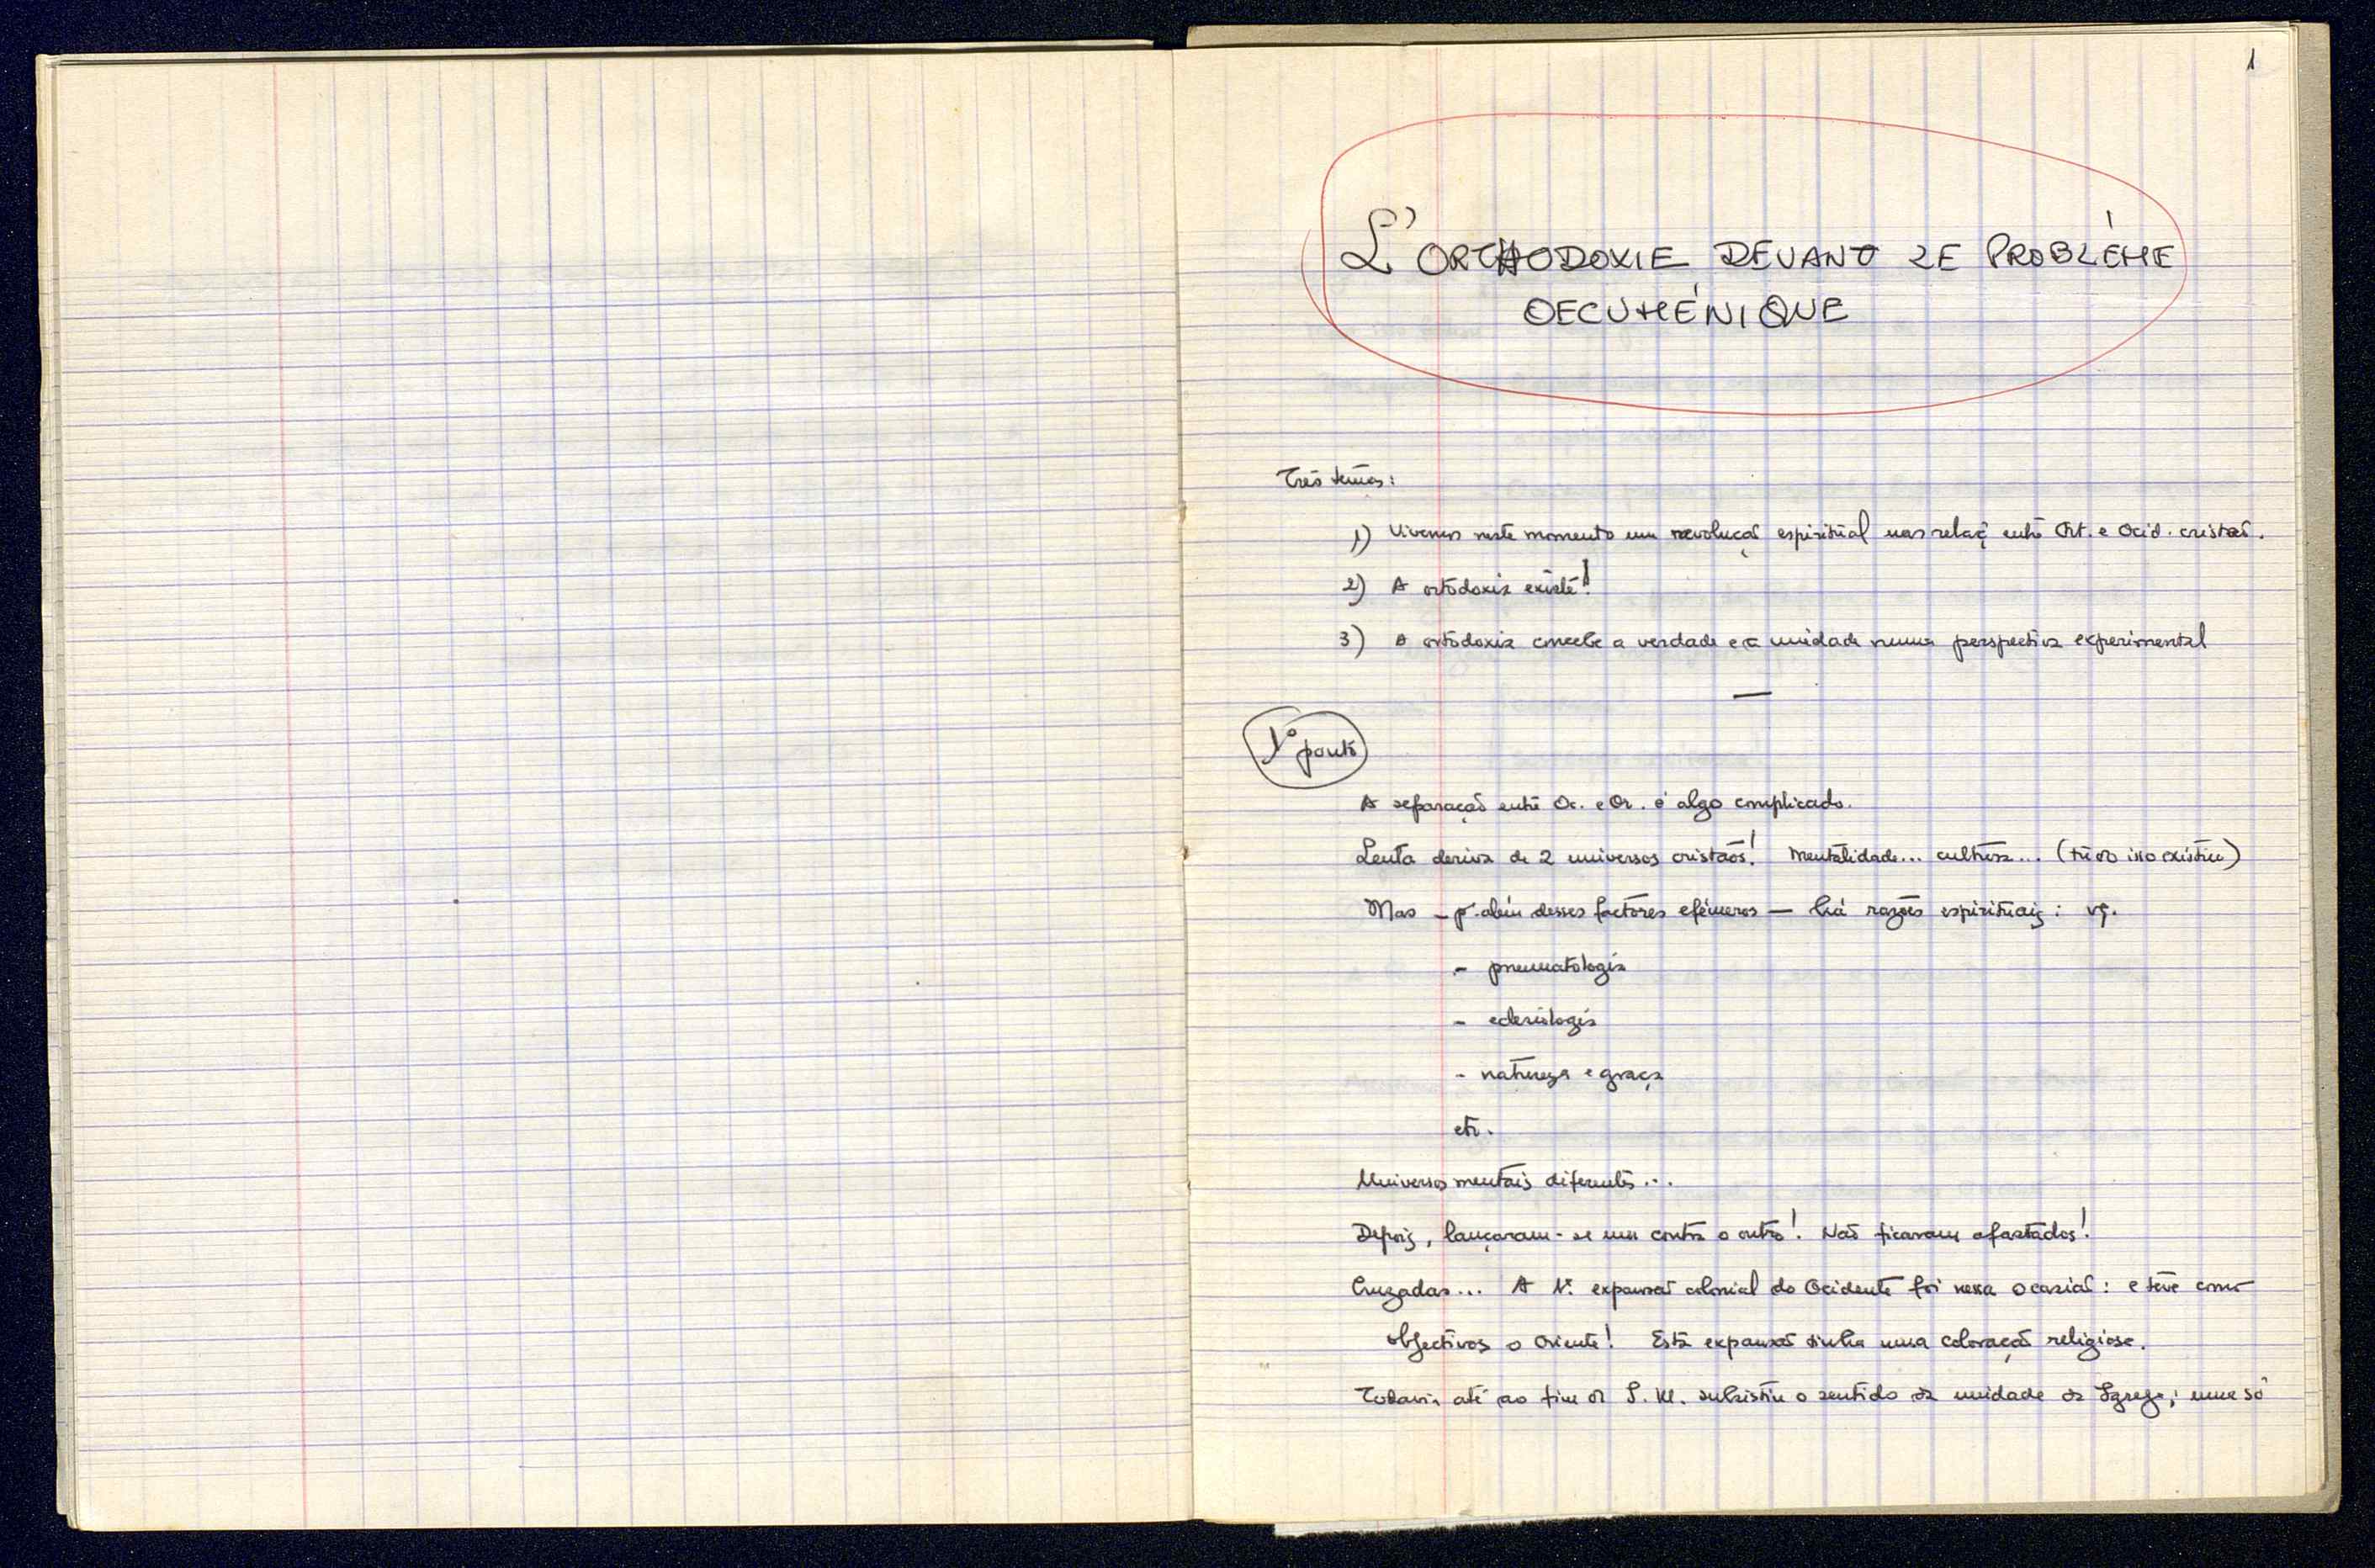 1
L'ORTHODOXIE DEVANT LE PROBLÉME
OECUMÉNIQUE
Três temas:
1) Vivemos neste momento um revolução espiritual nas relaç entre Ort. e Ocid. cristão.
2) A ortodoxia existe!
3) A ortodoxia concebe a verdade e a unidade numa perspectiva experimental
—
1º ponto
A separação entre Oc. e Or. é algo complicado.
Lenta deriva de 2 universos cristãos! Mentalidade... cultura... (tudo isso existiu)
Mas – p. além desses factores efémeros – há razões espirituais: vg.
- pneumatologia
- eclesiologia
- natureza e graça
etc.
Universos mentais diferentes...
Depois, lançaram-se um contra o outro! Não ficaram afastados!
Cruzadas... A 1ª expansão colonial do Ocidente foi nessa ocasião: e teve como
objectivos o Oriente! Esta expansão tinha uma coloração religiosa.
Todavia até ao fim do S. subsistiu o sentido da unidade da Igreja; uma só